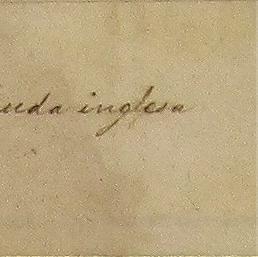 uda inglesa